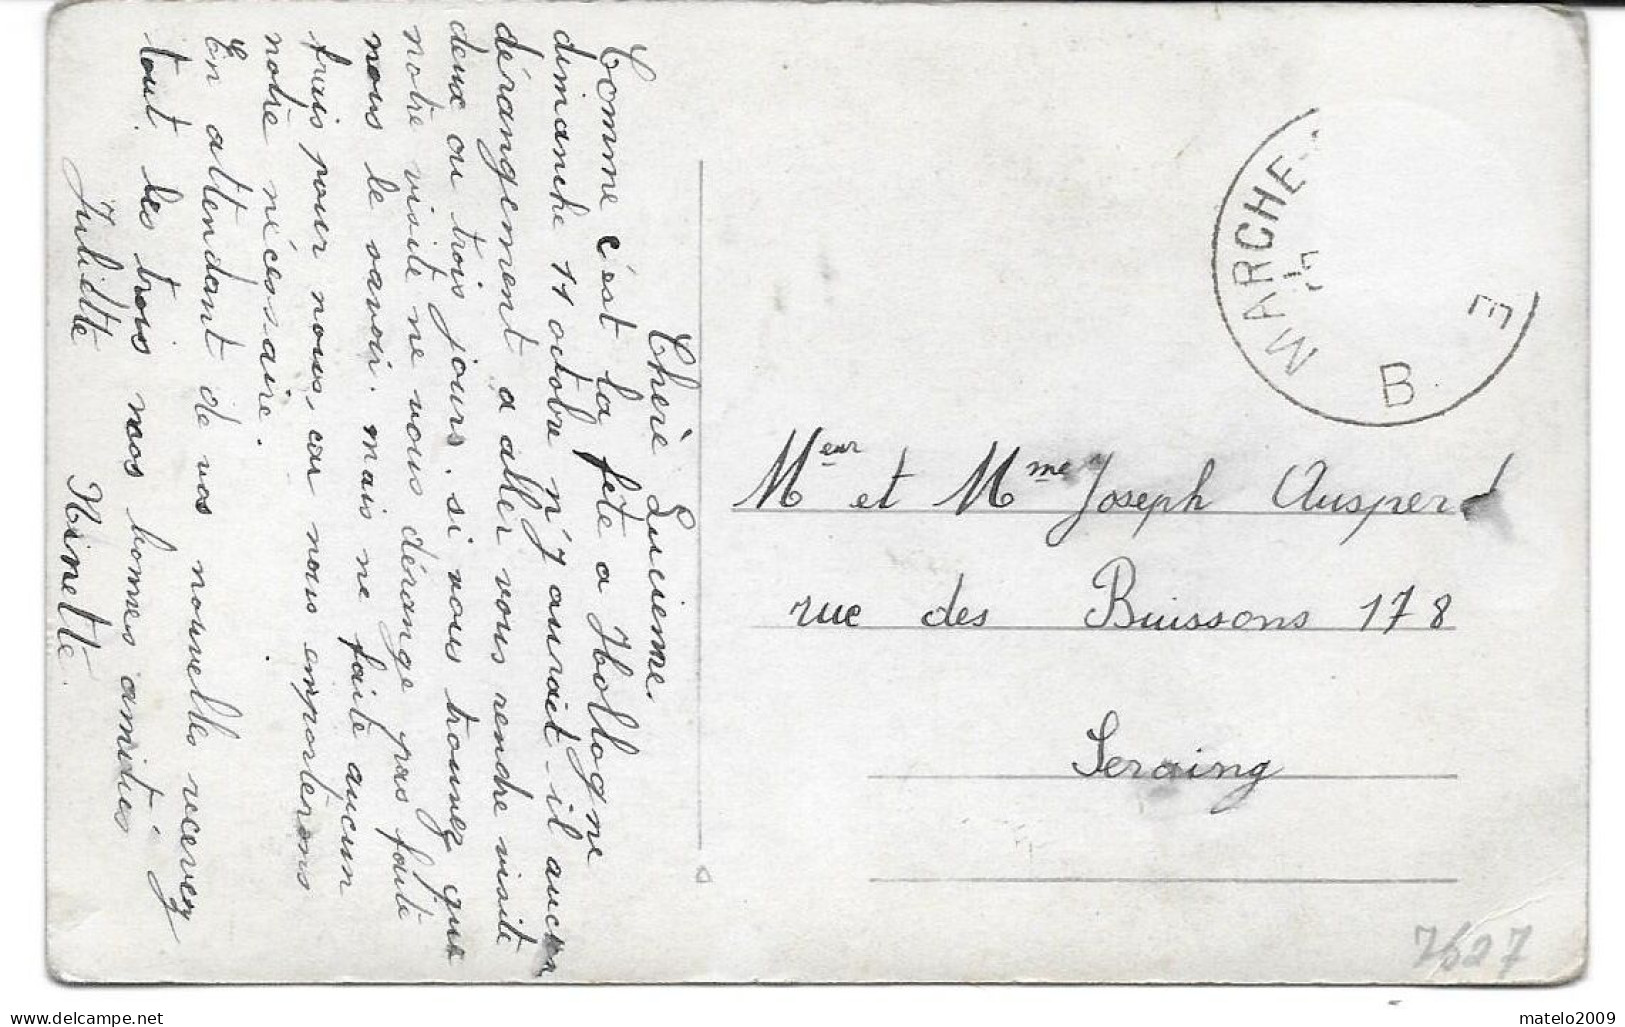 Chère Lucienne.
Comme c'est la fête a Hollogne
dimanche 11 octobre n'y aurait-il aucun
dérangement a aller vous rendre visite
deux ou trois jours. si vous trouvez que
notre visite ne vous dérange pas faite
nous le savoir. mais ne faite aucun
frais pour nous, car nous emporterons
notre nécessaire.
En attendant de vos nouvelles recevez
tout les trois nos bonnes amitiés
Juliette Ninette
MARCHE
B
E
Meur et Mme Joseph Ausperd
rue des Buissons 178
Seraing
7527
delcampe.net
matelo2009